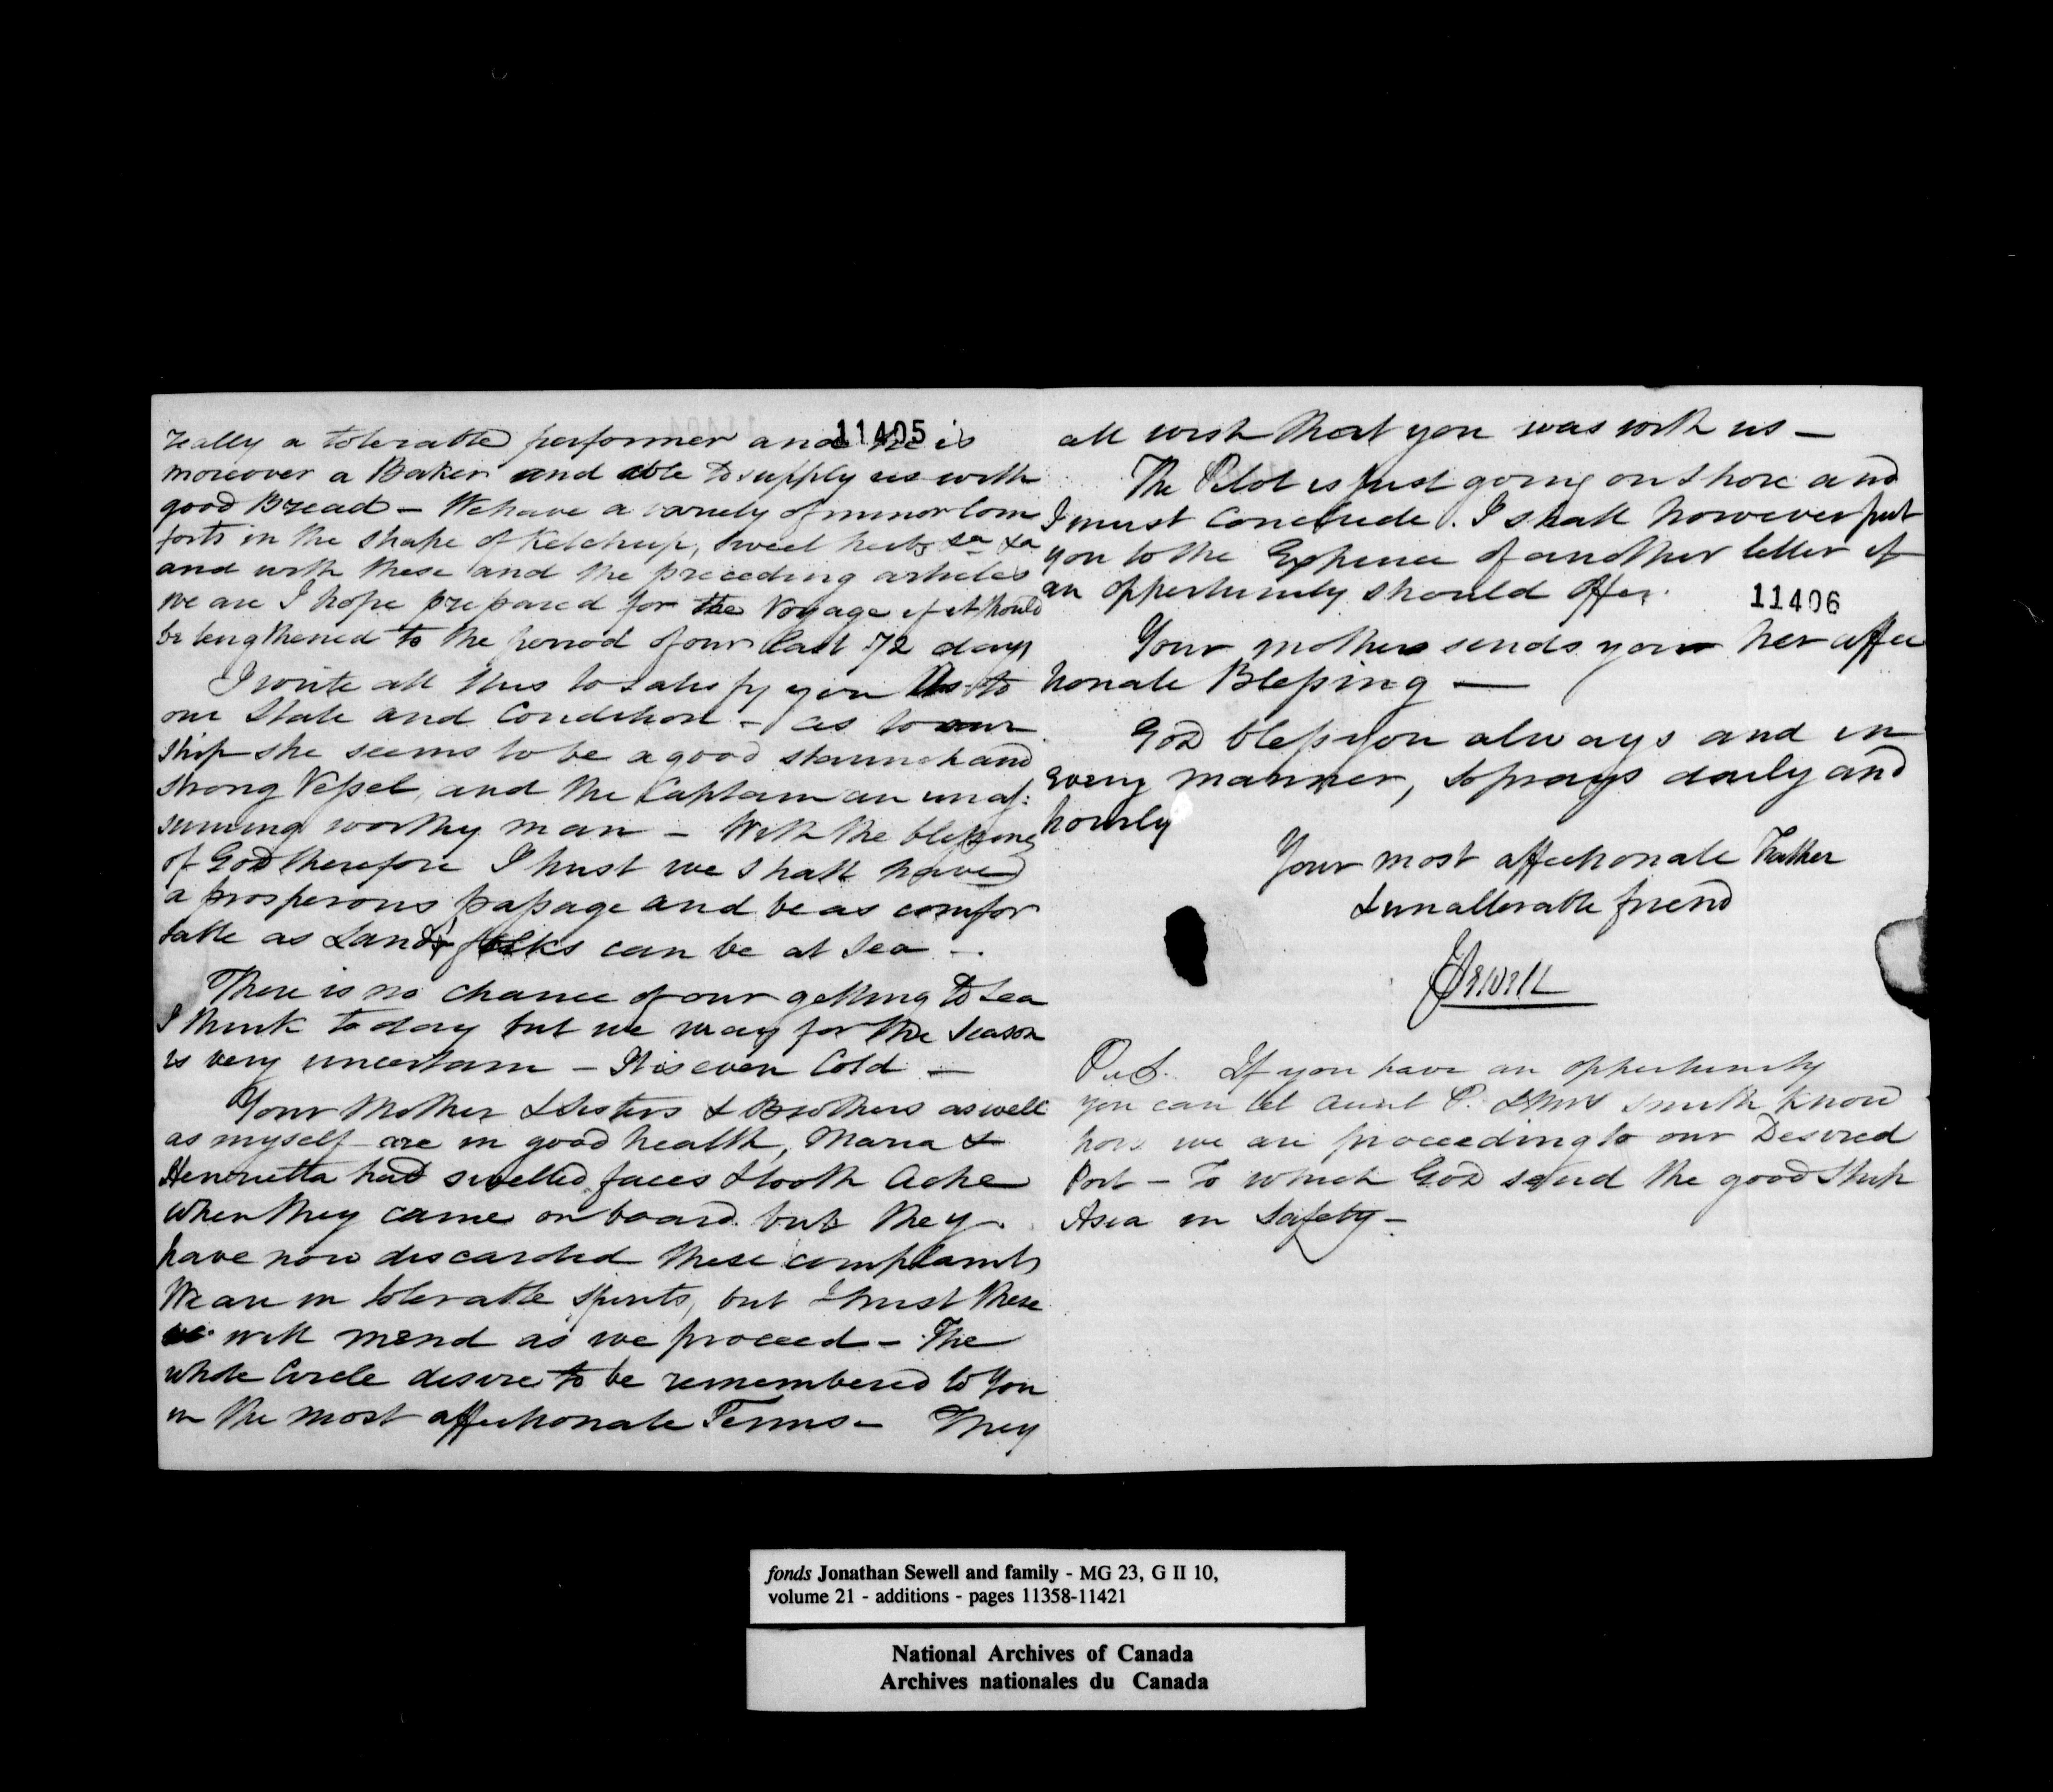 11405
really a tolerable performer and he is
moreover a Baker and able to supply us with
good Bread - We have a variety of minor Com
forts in the shape of Ketchup, sweet herbs &a &a
and with these and the preceding articles
we are I hope prepared for the Voyage if it should
be lengthened to the period of our last 72 days
I write all this to satisfy you As to
our State and Condition - as to our
Ship she seems to be a good staunch and
strong Vessel, and the Captain an unas:
suming worthy man - With the blessing
of God therefore I trust we shall have
a prosperous passage and be as comfor
table as Land folks can be at Sea -.
There is no chance of our getting to Sea
I think to day but we may for the Season
is very uncertain - It is even Cold -
Your Mother & Sisters & Brothers as well
as myself are in good health, Maria &
Henrietta had swelled faces & tooth Ache
when they came on board but they
have now discarded these complaints
We are in tolerable Spirits, but I trust these
will mend as we proceed - The
whole Circle desire to be remembered to You
in the most affectionate Terms - They
all wish that you was with us -
The Pilot is just going on Shore and
I must Conclude. I shall however put
you to the Expence of another letter if
an oppertunity should offer.
11406
Your mother sends you her affec
tionate Blessing -
God bless you always and in
every manner, so prays daily and
hourly
Your most affectionate Father
& unalterable friend
JSewell
P.S. If you have an oppertunity
you can let Aunt P. & Mrs Smith know
how we are proceeding to our Desired
Port - To which God send the good Ship
Asia in Safety -
fonds Jonathan Sewell and family - MG 23, G II 10,
volume 21 - additions - pages 11358-11421
National Archives of Canada
Archives nationales du Canada